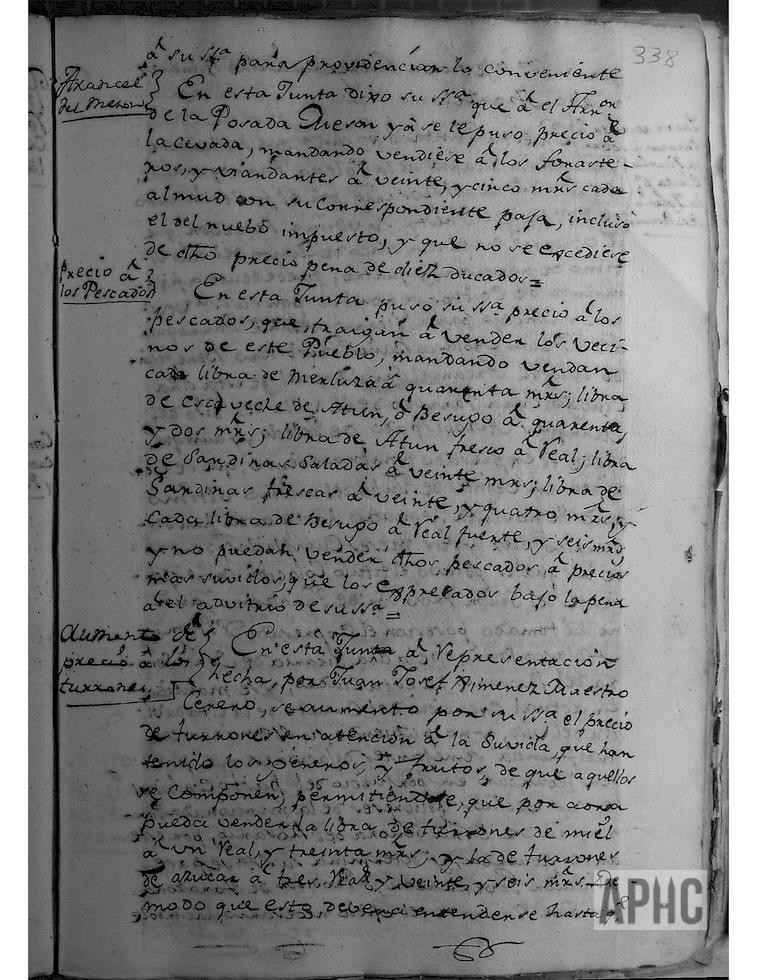 338
â su ss.ª para providenciar lo conveniente
Aranzel
del Meson
En esta Junta dixo su ss.ª que â el Arr.or
de la Posada Meson yâ se le puso precio â
la cevada, mandando vendiese â los foraste-
ros, y viandantes â veinte, y cinco mrs cada
almud con su correspondiente paja, incluso
el del nuebo impuesto, y que no se excediese
de dho precio pena de diez ducados =
Precio â
los Pescados
En esta Junta puso su ss.ª precio â los
pescados, que traigan â vender los veci-
nos de este Pueblo, mandando vendan
cada libra de Merluza â quarenta mrs; libra
de escaveche de Atun, ô Besugo â quarenta,
y dos mrs; libra de Atun fresco â Real; libra
de Sardinas Saladas â veinte mrs; libra de
Sardinas frescas â veinte, y quatro mrs, y
cada libra de Besugo â Real fuerte, y seis mrs,
y no puedan vender dhos pescados â precios
mas suvidos, que los expresados bajo la pena
â el advitrio de su ssª =
Aumento de
precio â los
turrones
En esta Junta â representación
hecha, por Juan Josef Ximenez Maestro
Cerero, se aumento por su ssª el precio
de turrones en atencion â la Suvida, que han
tenido los generos, y frutos, de que aquellos
se componen, permitiendole, que por aora
pueda vender la libra de turrones de miel
â un Real, y treinta mrs; y la de turrones
de azucar â tres Reales y veinte, y seis mrs. De
modo que esto deverá entenderse hasta q.e
APHC